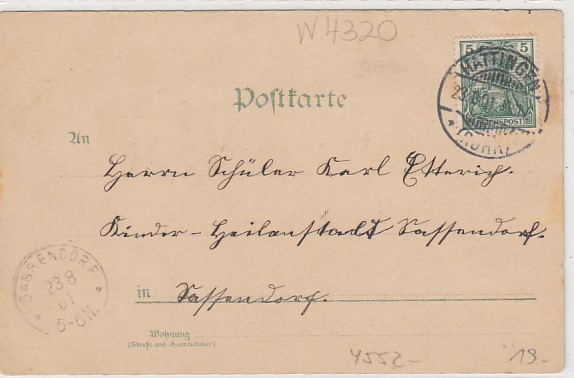 W 4320
5 5
REICHSPOST
HATTINGEN
(RUHR)
Postkarte
An
Herrn Schüler Karl Etterich.
Kinder-Heilanstalt Sassendorf.
in Sassendorf.
SASSENDORF
23 8
01
5-6N.
Wohnung
(Straße und Hausnummer)
4552-
19.-